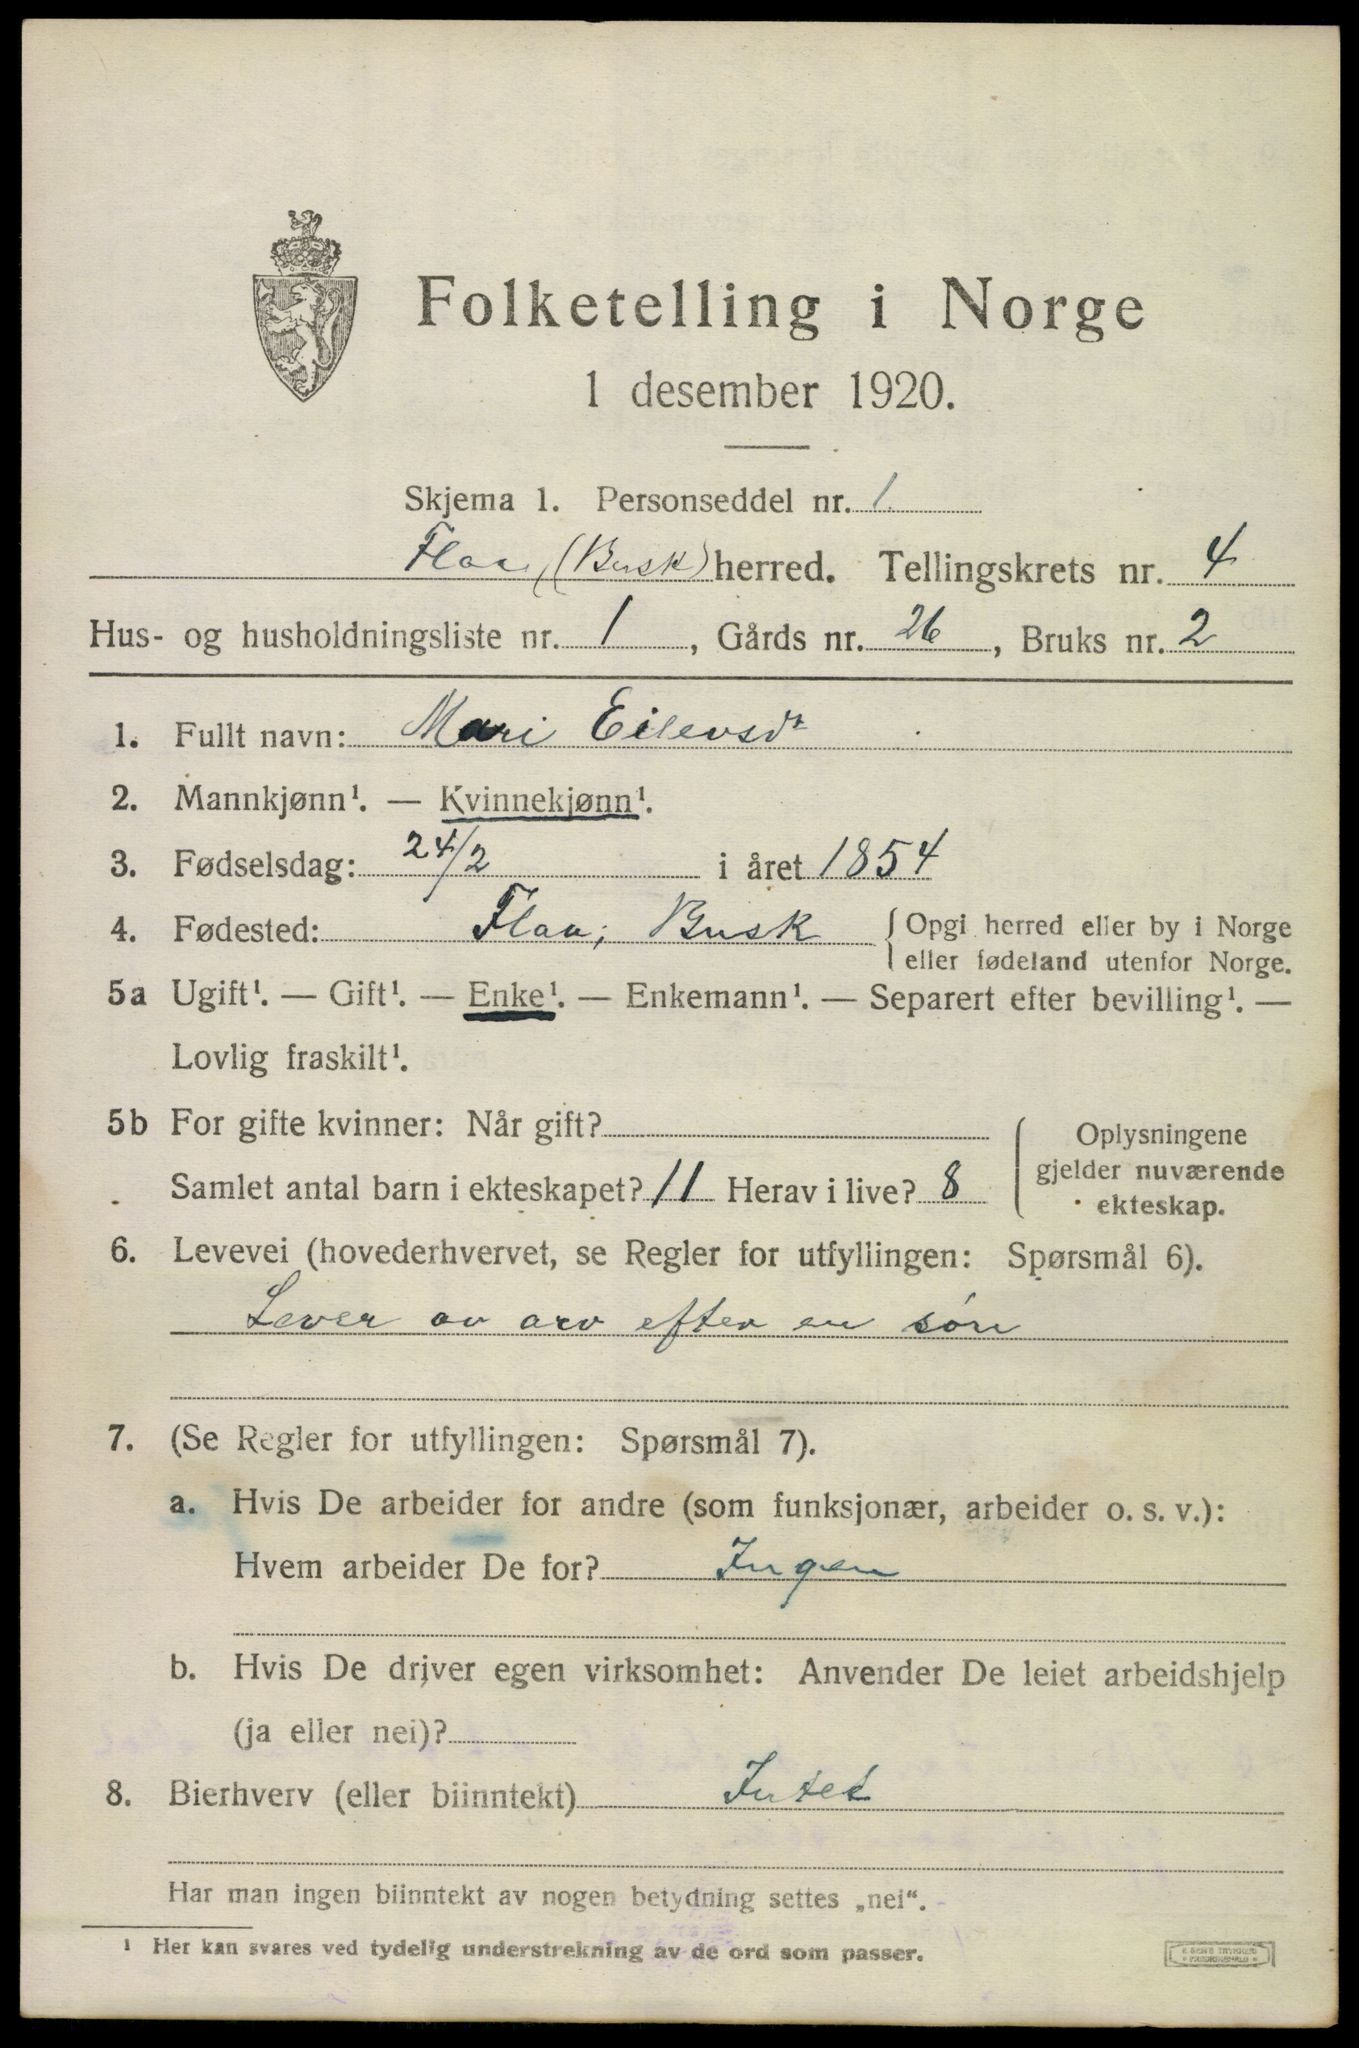 Folketelling i Norge
1 desember 1920.
Skjema 1. Personseddel nr. 1
Flaa (Busk) herred. Tellingskrets nr. 4
Hus- og husholdningsliste nr. 1, Gårds nr. 26, Bruks nr. 2
1. Fullt navn: Mari Eilevsdt
2. Mannkjønn¹. — Kvinnekjønn¹.
3. Fødselsdag: 24/2 i året 1854
4. Fødested: Flaa, Busk { Opgi herred eller by i Norge
eller fødeland utenfor Norge.
5a Ugift¹. — Gift¹. — Enke¹. — Enkemann¹. — Separert efter bevilling¹. —
Lovlig fraskilt¹.
5b For gifte kvinner: Når gift?
Samlet antal barn i ekteskapet? 11 Herav i live? 8
Oplysningene
gjelder nuværende
ekteskap.
6. Levevei (hovederhvervet, se Regler for utfyllingen: Spørsmål 6).
Lever av arv efter en søn
7. (Se Regler for utfyllingen: Spørsmål 7).
a. Hvis De arbeider for andre (som funksjonær, arbeider o. s. v.):
Hvem arbeider De for? Ingen
b. Hvis De driver egen virksomhet: Anvender De leiet arbeidshjelp
(ja eller nei)?
8. Bierhverv (eller biinntekt) Intet
Har man ingen biinntekt av nogen betydning settes „nei“.
¹ Her kan svares ved tydelig understrekning av de ord som passer.